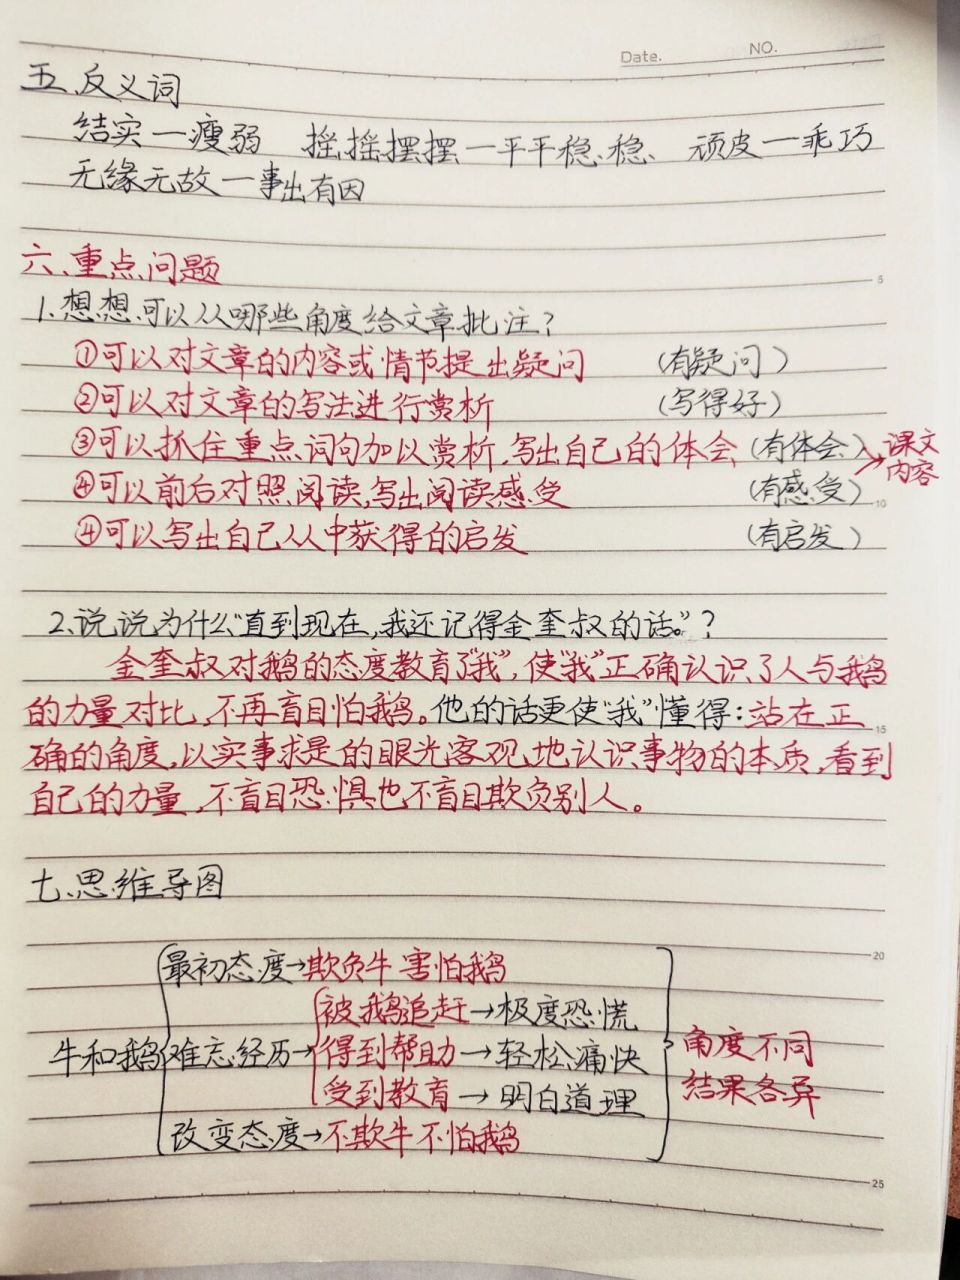 Date. NO.
五、反义词
结实—瘦弱 摇摇摆摆—平平稳稳、 顽皮—乖巧
无缘无故—事出有因
六、重点问题
5
1.想想可以从哪些角度给文章批注?
①可以对文章的内容或情节提出疑问 (有疑问)
②可以对文章的写法进行赏析 (写得好)
③可以抓住重点词句加以赏析,写出自己的体会 (有体会) 课文
内容
④可以前后对照阅读,写出阅读感受 (有感受)
10
④可以写出自己从中获得的启发 (有启发)
2.说说为什么“直到现在,我还记得金奎叔的话。”?
金奎叔对鹅的态度教育了“我”,使“我”正确认识了人与鹅
的力量对比,不再盲目怕鹅。他的话更使“我”懂得:站在正
15
确的角度,以实事求是的眼光客观地认识事物的本质,看到
自己的力量,不盲目恐惧也不盲目欺负别人。
七、思维导图
20
最初态度→欺负牛 害怕鹅
被鹅追赶→极度恐慌
牛和鹅 难忘经历→得到帮助→轻松痛快 角度不同
受到教育→明白道理 结果各异
改变态度→不欺牛 不怕鹅
25